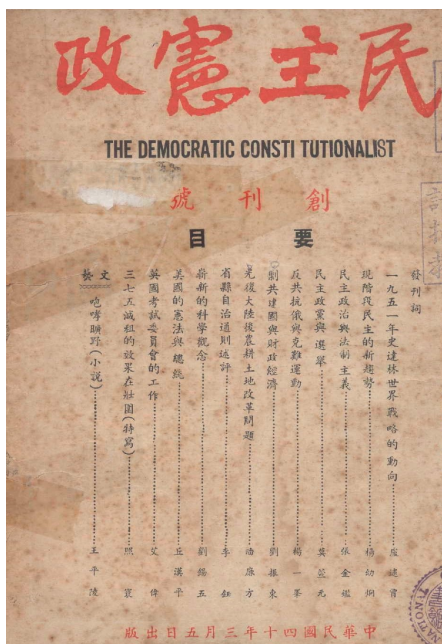 民主憲政
THE DEMOCRATIC CONSTI TUTIONALIST
創刊號
要目
發刊詞
一九五一年史達林世界戰略的動向
現階段民主的新趨勢 楊幼炯
民主政治與法制主義 張金鑑
民主政黨與選舉 莫萱元
反共抗俄與克難運動 楊一峯
剿共建國與財政經濟 劉振東
光復大陸後農耕土地改革問題 潘廉方
省縣自治通則述評 李
嶄新的科學概念 劉錫五
美國的憲法與總統 丘漢平
英國考試委員會的工作 艾偉
三七五減租的效果在壯圍(特寫) 熙寰
文藝
咆哮曠野(小說) 王平陵
中華民國四十年三月五日出版